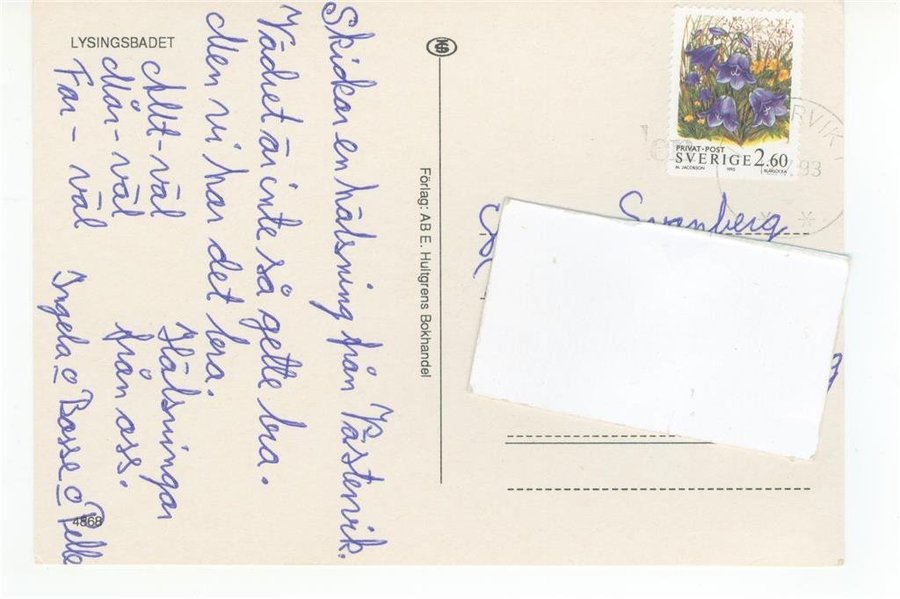 LYSINGSBADET
Skickar en hälsning från Västervik.
Vädret är inte så gette bra.
Men vi har det bra.
Allt-väl
Mår-väl
Far-väl
Hälsningar
från oss.
Ingela o Bosse o Pelle
4868
Förlag: AB E. Hultgrens Bokhandel
PRIVAT-POST
SVERIGE 2.60
M. JACOBSON 1993 BLÅKLOCKA
RVIK
.93
Svanberg